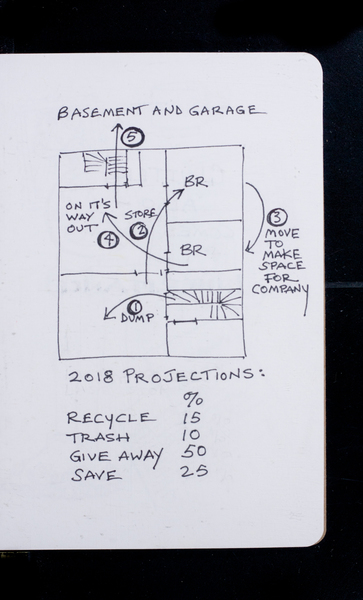 BASEMENT AND GARAGE
⑤
BR
ON IT'S
WAY
OUT
STORE
②
④
BR
③
MOVE
TO
MAKE
SPACE
FOR
COMPANY
①
DUMP
2018 PROJECTIONS:
%
RECYCLE 15
TRASH 10
GIVE AWAY 50
SAVE 25